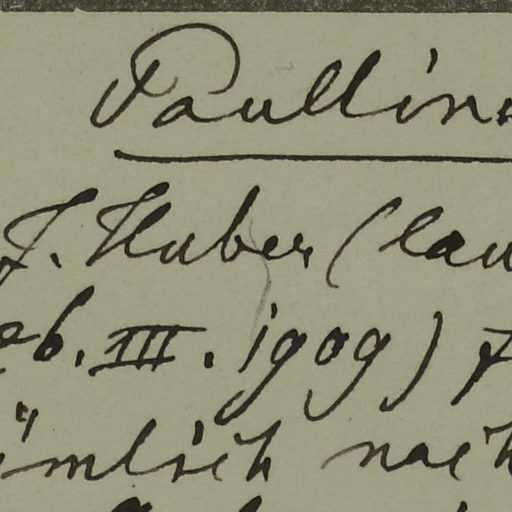 Paullin
J. Huber (lau
eb. III. 1909) f
ömlich nach